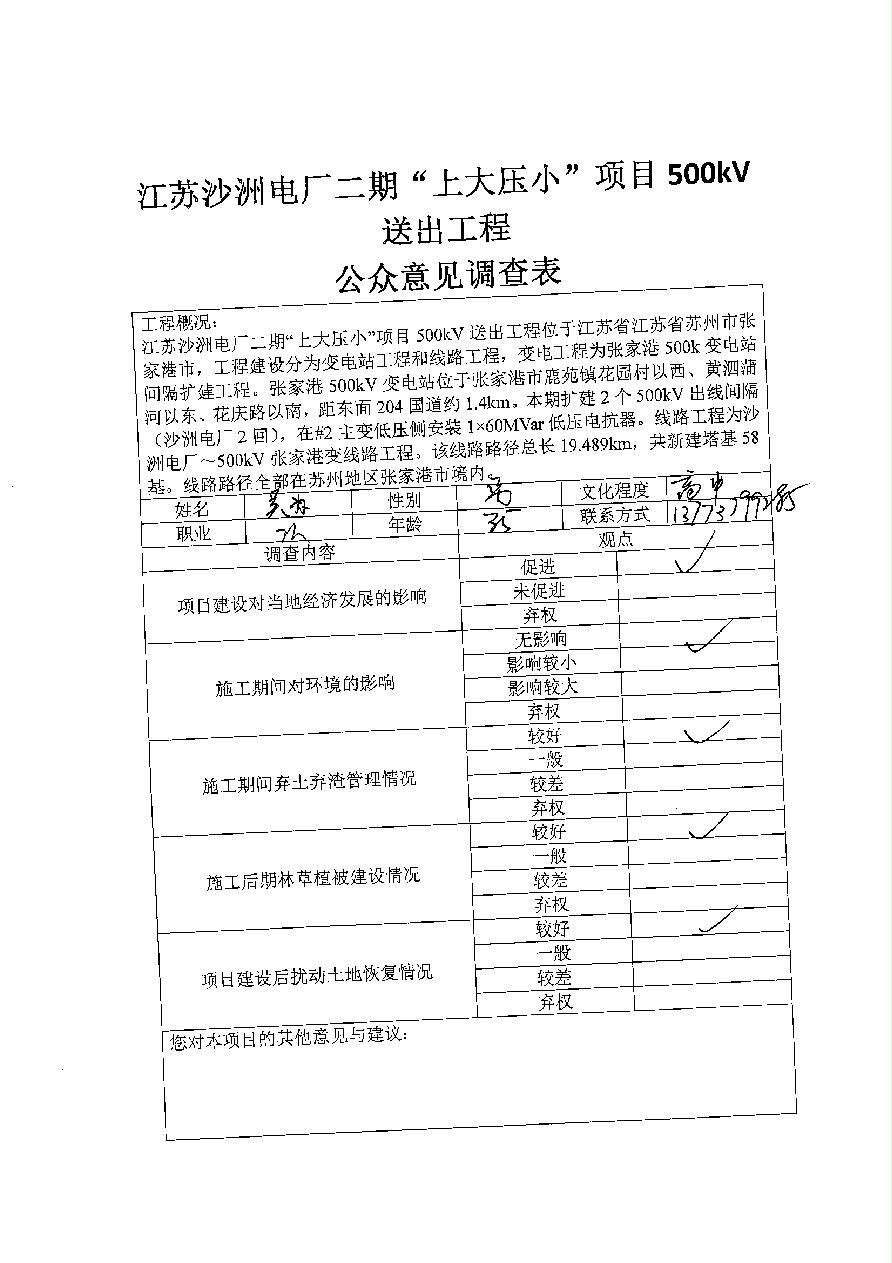 江苏沙洲电厂二期“上大压小”项目 500kV
送出工程
公众意见调查表
工程概况：
江苏沙洲电厂二期“上大压小”项目 500kV 送出工程位于江苏省江苏省苏州市张
家港市，工程建设分为变电站工程和线路工程，变电工程为张家港 500k 变电站
间隔扩建工程。张家港 500kV 变电站位于张家港市鹿苑镇花园村以西、黄泗蒲
河以东、花庆路以南，距东面 204 国道约 1.4km。本期扩建 2 个 500kV 出线间隔
（沙洲电厂 2 回），在#2 主变低压侧安装 1×60MVar 低压电抗器。线路工程为沙
洲电厂～500kV 张家港变线路工程。该线路路径总长 19.489km，共新建塔基 58
基。线路路径全部在苏州地区张家港市境内。
姓名 性别 文化程度 高中
职业 年龄 联系方式
调查内容 观点
项目建设对当地经济发展的影响 促进 ✓
未促进
弃权
施工期间对环境的影响 无影响 ✓
影响较小
影响较大
弃权
施工期间弃土弃渣管理情况 较好 ✓
一般
较差
弃权
施工后期林草植被建设情况 较好 ✓
一般
较差
弃权
项目建设后扰动土地恢复情况 较好 ✓
一般
较差
弃权
您对本项目的其他意见与建议：